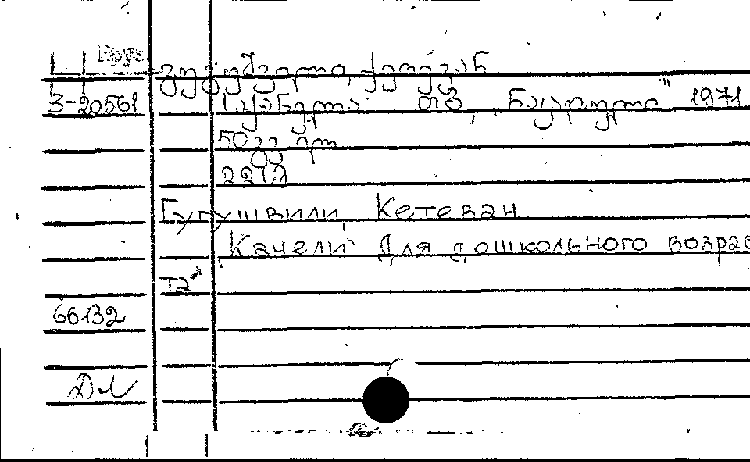 Груз
გუგუშვილი, ქეთევან
3-20561 საქანელა თბ., „ნაკადული" 1971
50
22
Гугушвили, Кетеван
Качели. Для дошкольного возрас
T2
66132